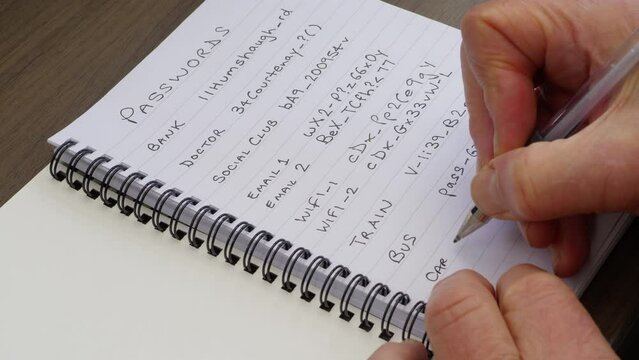 PASSWORDS
BANK 11Humshaugh_rd
DOCTOR 34Courtenay_?()
SOCIAL CLUB bA9_200954v
EMAIL 1 wX2-P?z66xOy
EMAIL 2 BeX_TCflh?<T7
WIFI-1 cDx-Pp2(e9gy
WIFI-2 cDx-Gx33vW2L
TRAIN V-li39_B2
BUS Pass-6
CAR